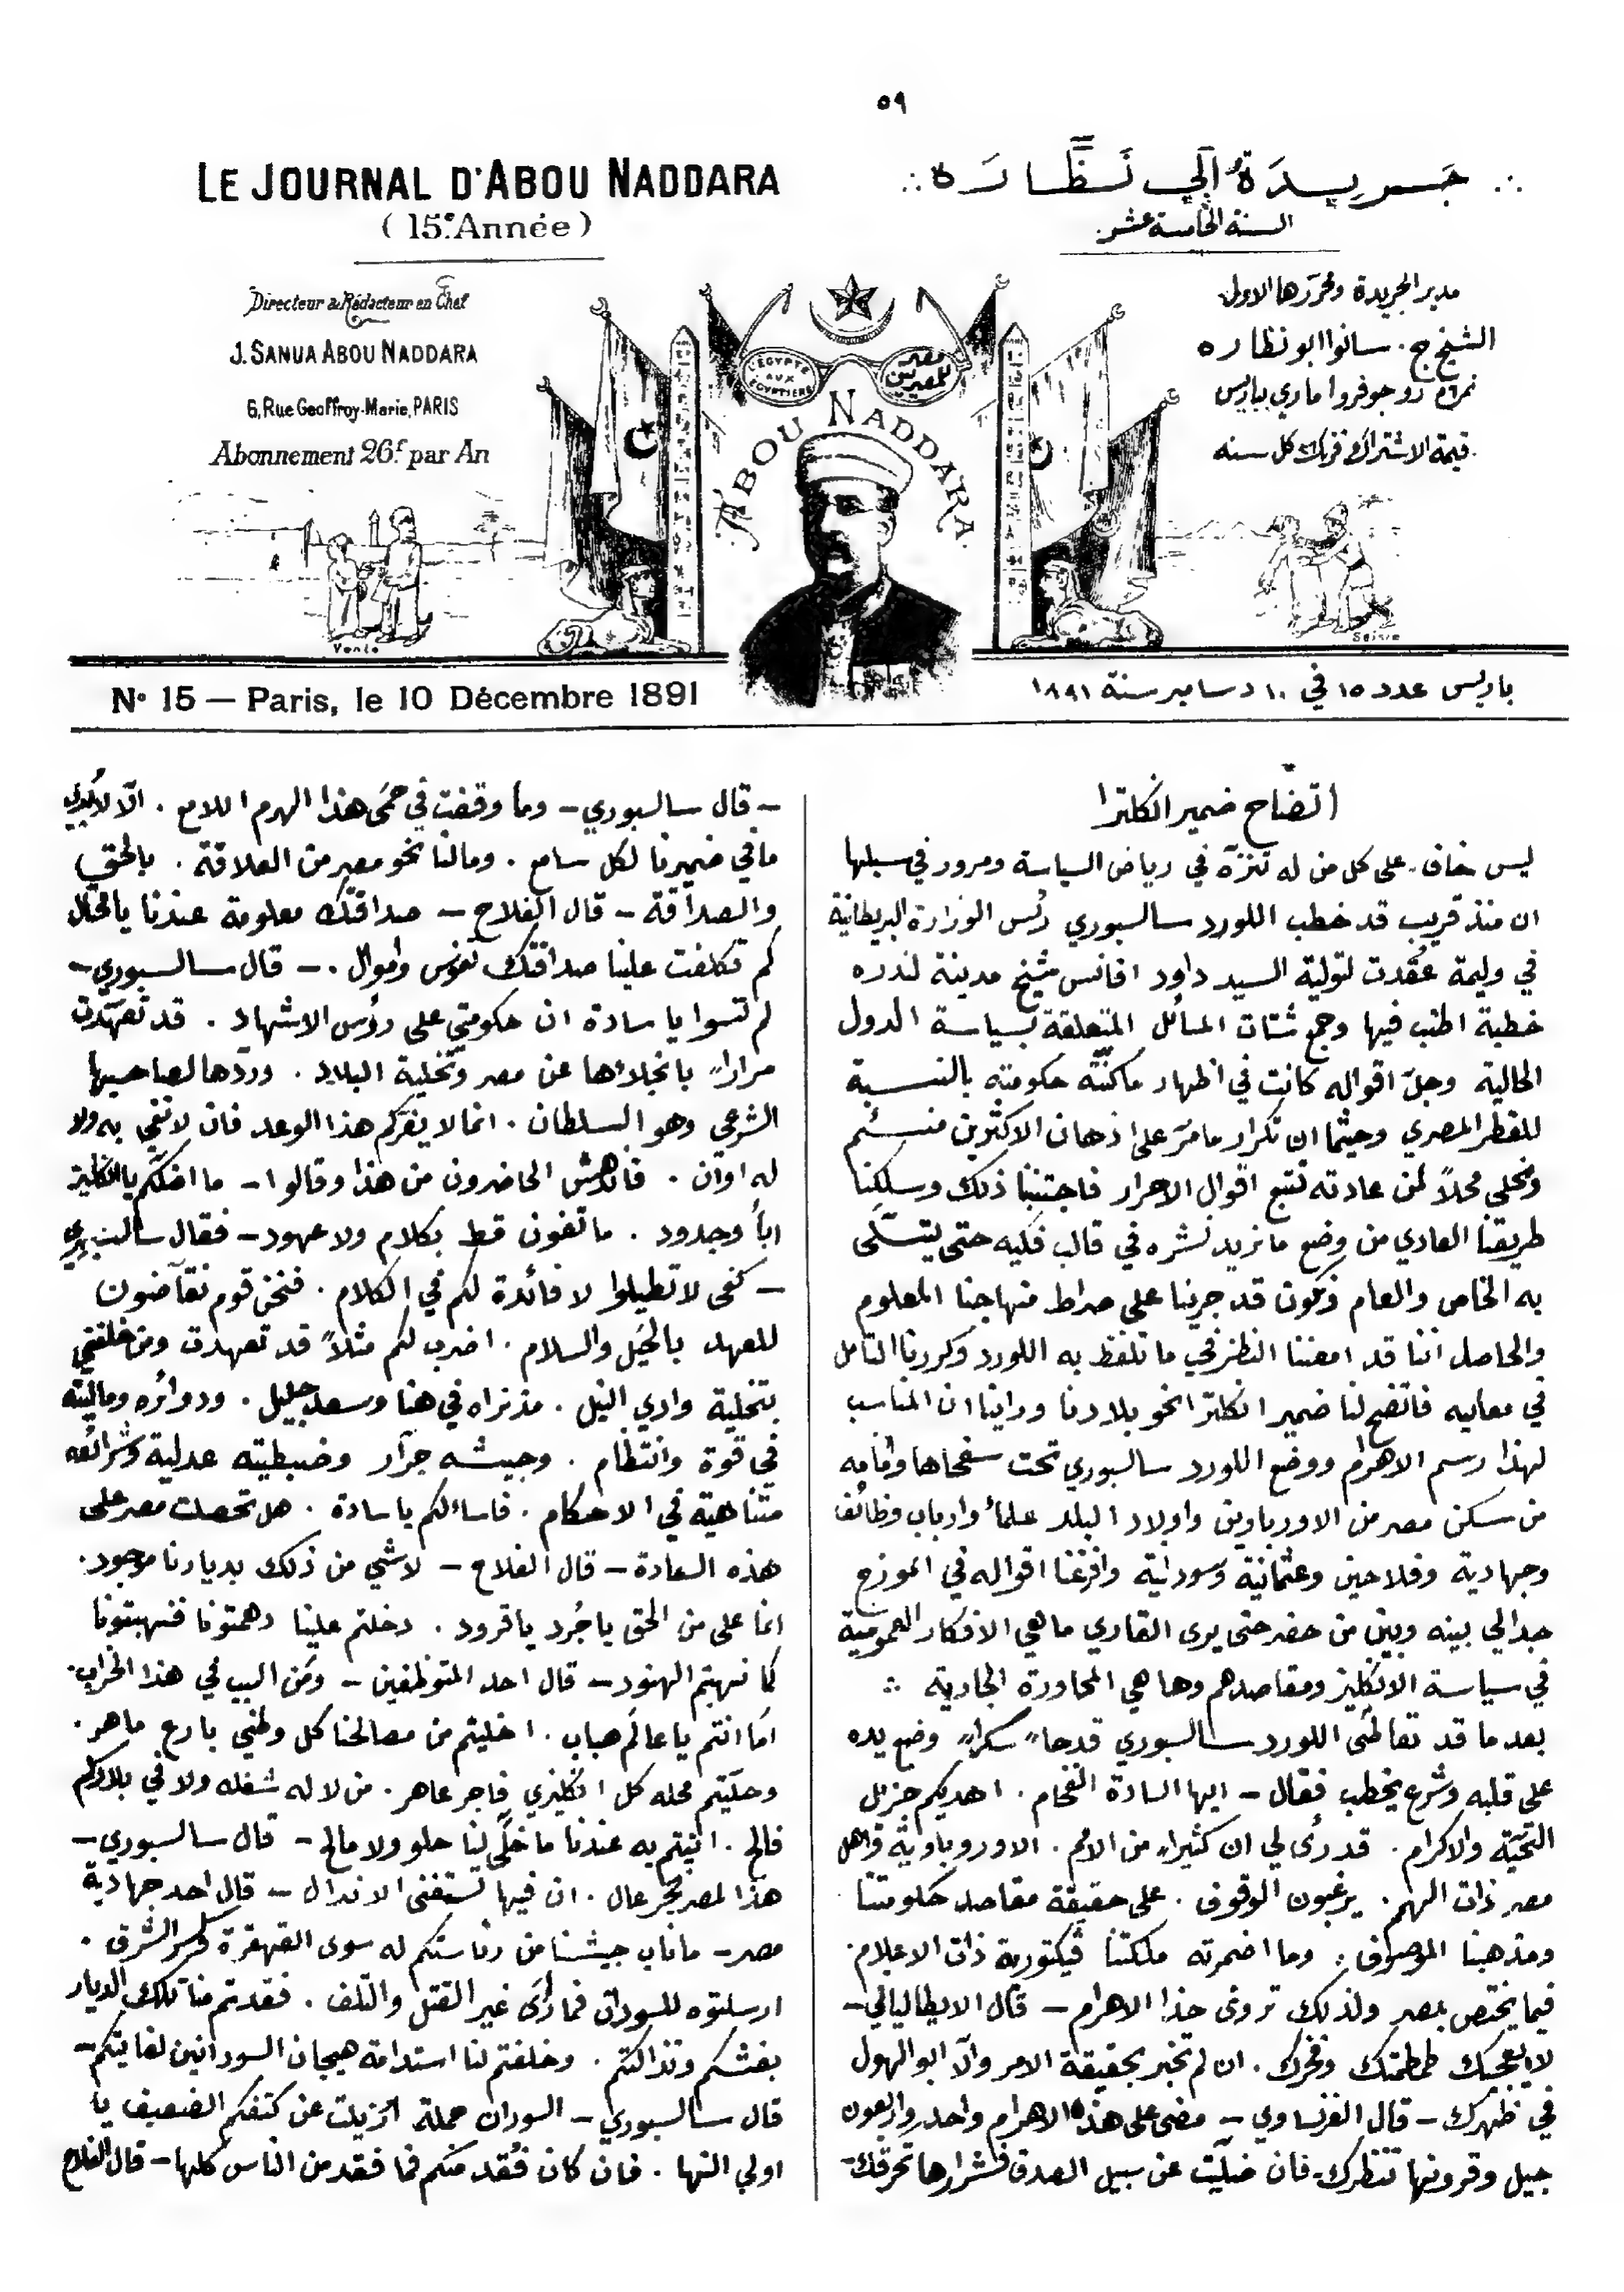 ٥٩
LE JOURNAL D'ABOU NADDARA
(15e Année)
جَريدَةُ أبي نَظَّارَه
السنة الخامسة عشر
Directeur & Rédacteur en Chef
J. SANUA ABOU NADDARA
6, Rue Geoffroy-Marie, PARIS
Abonnement 26f. par An
مدير الجريدة ومحرّرها الاول
الشيخ ج. سانوا ابو نظاره
نمرة ٦ رو جوفروا ماري بباريس
قيمة الاشتراك ٢٦ فرنك كل سنه
L'EGYPTE AUX EGYPTIENS
مصر للمصريين
ABOU NADDARA
Vente
Saisie
No 15 — Paris, le 10 Décembre 1891
باريس عدد ١٥ في ١٠ دسامبر سنة ١٨٩١
اتضاح ضمير انكلترا
ليس خاف على كل من له تنزّه في رياض السياسة ومرور في سبلها
ان منذ قريب قد خطب اللورد سالسبوري رئس الوزارة البريطانية
في وليمة عقدت لتولية السيد داود افانس شيخ مدينة لندره
خطبة اطنب فيها وجمع شتات المسائل المتعلقة بسياسة الدول
الحالية وجلّ اقواله كانت في اظهار ماكنّته حكومته بالنسبة
للقطر المصري وحيثما ان تكرار ما مرّ على اذهان الاكثرين منسئم
ومخلي محلاً لمن عادته تتبع اقوال الاحرار فاجتنبنا ذلك وسلكنا
طريقنا العادي من وضع ما نريد نشره في قالب فكيه حتى يتسلّى
به الخاص والعام ونكون قد جرينا على صراط منهاجنا المعلوم
والحاصل اننا قد امعننا النظر في ما تلفظ به اللورد وكررنا التأمل
في معانيه فاتضح لنا ضمير انكلترا نحو بلادنا وراينا ان المناسب
لهذا رسم الاهرام ووضع اللورد سالسبوري تحت سفحاها وامامه
من سكن مصر من الاورباوين واولاد البلد علماء وارباب وظائف
وجهادية وفلاحين وعثمانية وسودانية وافرغنا اقواله في انموزج
جدالي بينه وبين من حضر حتى يرى القاري ماهي الافكار العمومية
في سياسة الانكليز ومقاصدهم وها هي المحاورة الجارية
بعد ما قد تعاطى اللورد سالسبوري قدحاً سكراً وضع يده
على قلبه وشرع يخطب فقال – ايها السادة الفخام . اهديكم جزيل
التحيّة والاكرام . قد رؤى لي ان كثيراً من الامم . الاوروباوية واهل
مصر ذات الهمم . يرغبون الوقوف . على حقيقة مقاصد حكومتنا
ومذهبنا الموصوف . وما اضمرته ملكتنا ڤيكتورية ذات الاعلام .
فيما يختص بمصر ولذلك تروني حذا الاهرام – قال الايطاليالي –
لا يعجبك طمطمتك وفخرك . ان لم تخبر بحقيقة الامر والّا ابو الهول
في ظهرك – قال الفرنساوي – مضى على هذه الاهرام واحد واربعون
جيل وقرونها تنتظرك . فان ضلّيت عن سبيل الصدق فشرارها تحرقك –
– قال سالسبوري – وما وقفت في حمى هذا الهرم اللامع . الّا لابدي
مافي ضميرنا لكل سامع . ومالنا نحو مصر من العلاقة . بالحق
والصداقة – قال الفلاح – صداقتك معلومة عندنا يا لخال
كم تكلفت علينا صداقتك نفوس واموال . – قال سالسبوري –
لم تنسوا يا سادة ان حكومتي على رؤس الاشهاد . قد تعهّدت
مراراً بانجلاءها عن مصر وتخلية البلاد . وردّها لصاحبها
الشرعي وهو السلطان . انما لا يغرّكم هذا الوعد فان لا نفي به ولا
له اوآن . فاندهش الحاضرون من هذا وقالوا – ما اضلّكم يا انكليز
اباً وجدود . ما تفون قط بكلام ولا عهود – فقال سالسبوري
– كفى لا تطيلوا لا فائدة لكم في الكلام . فنحن قوم نقّاضون
للعهد بالحيَل والسلام . اضرب لكم مثلاً قد تعهدت ومن خلفني
بتخلية وادي النيل . مذ نراه في هنا وسعد جليل . ودوائره وماليته
في قوة وانتظام . وجيشه جرّار وضبطيته عدلية وشرائعه
متناهية في الاحكام . فاسألكم يا سادة . هل تحصلت مصر على
هذه السعادة – قال الفلاح – لاشي من ذلك بديارنا موجود .
انما على من الحق يا جُرد يا قرود . دخلتم علينا دهمتونا فنهبتونا
كما نهبتم الهنود – قال احد المتوظفين – ومَن السبب في هذا الخراب .
امّا انتم يا عالم هباب . اخليتم من مصالحنا كل وطني بارع ماهر .
وحلّيتم محله كل انكليزي فاجر عاهر . من لا له شغله ولا في بلادكم
فالح . اتيتم به عندنا ما خلّى لنا حلو ولا مالح – قال سالسبوري –
هذا لمصر فخر عال . ان فيها تستغنى الاندال – قال احد جهادية
مصر – ماناب جيشنا من رئاستكم له سوى القهقرة وكسر الشرف .
ارسلتوه للسودان فما رأى غير القتل والتلف . ففقدتم منا تلك الديار
بغشكم ونذالتكم . وخلفتم لنا استدامة هيجان السودانين لغايتكم –
قال سالسبوري – السودان حملة ازيلت عن كتفكم الضعيف يا
اولي النها . فان كان فُقد منكم فما فقد من الناس كلها – قال الفلاح